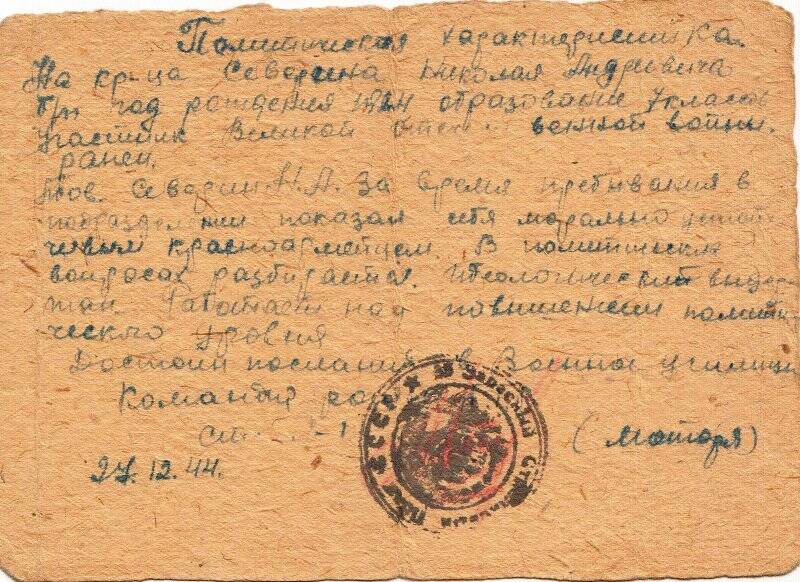 Политическая характеристика.
На кр-ца Северина Николая Андреевича
б/п год рождения 1924 образование 7 класс
участник Великой Отечественной войны.
ранен.
Тов. Северин Н.А. за время пребывания в
подразделении показал себя морально устой
чивым красноармейцем. В политических
вопросах разбирается. Идеологический выдер
жан. Работает над повышением полити
ческого уровня
Достоин послания в Военно училище
Командир роты
ст.
(Моторя)
27.12.44.
СССР Запасный Стрелковый